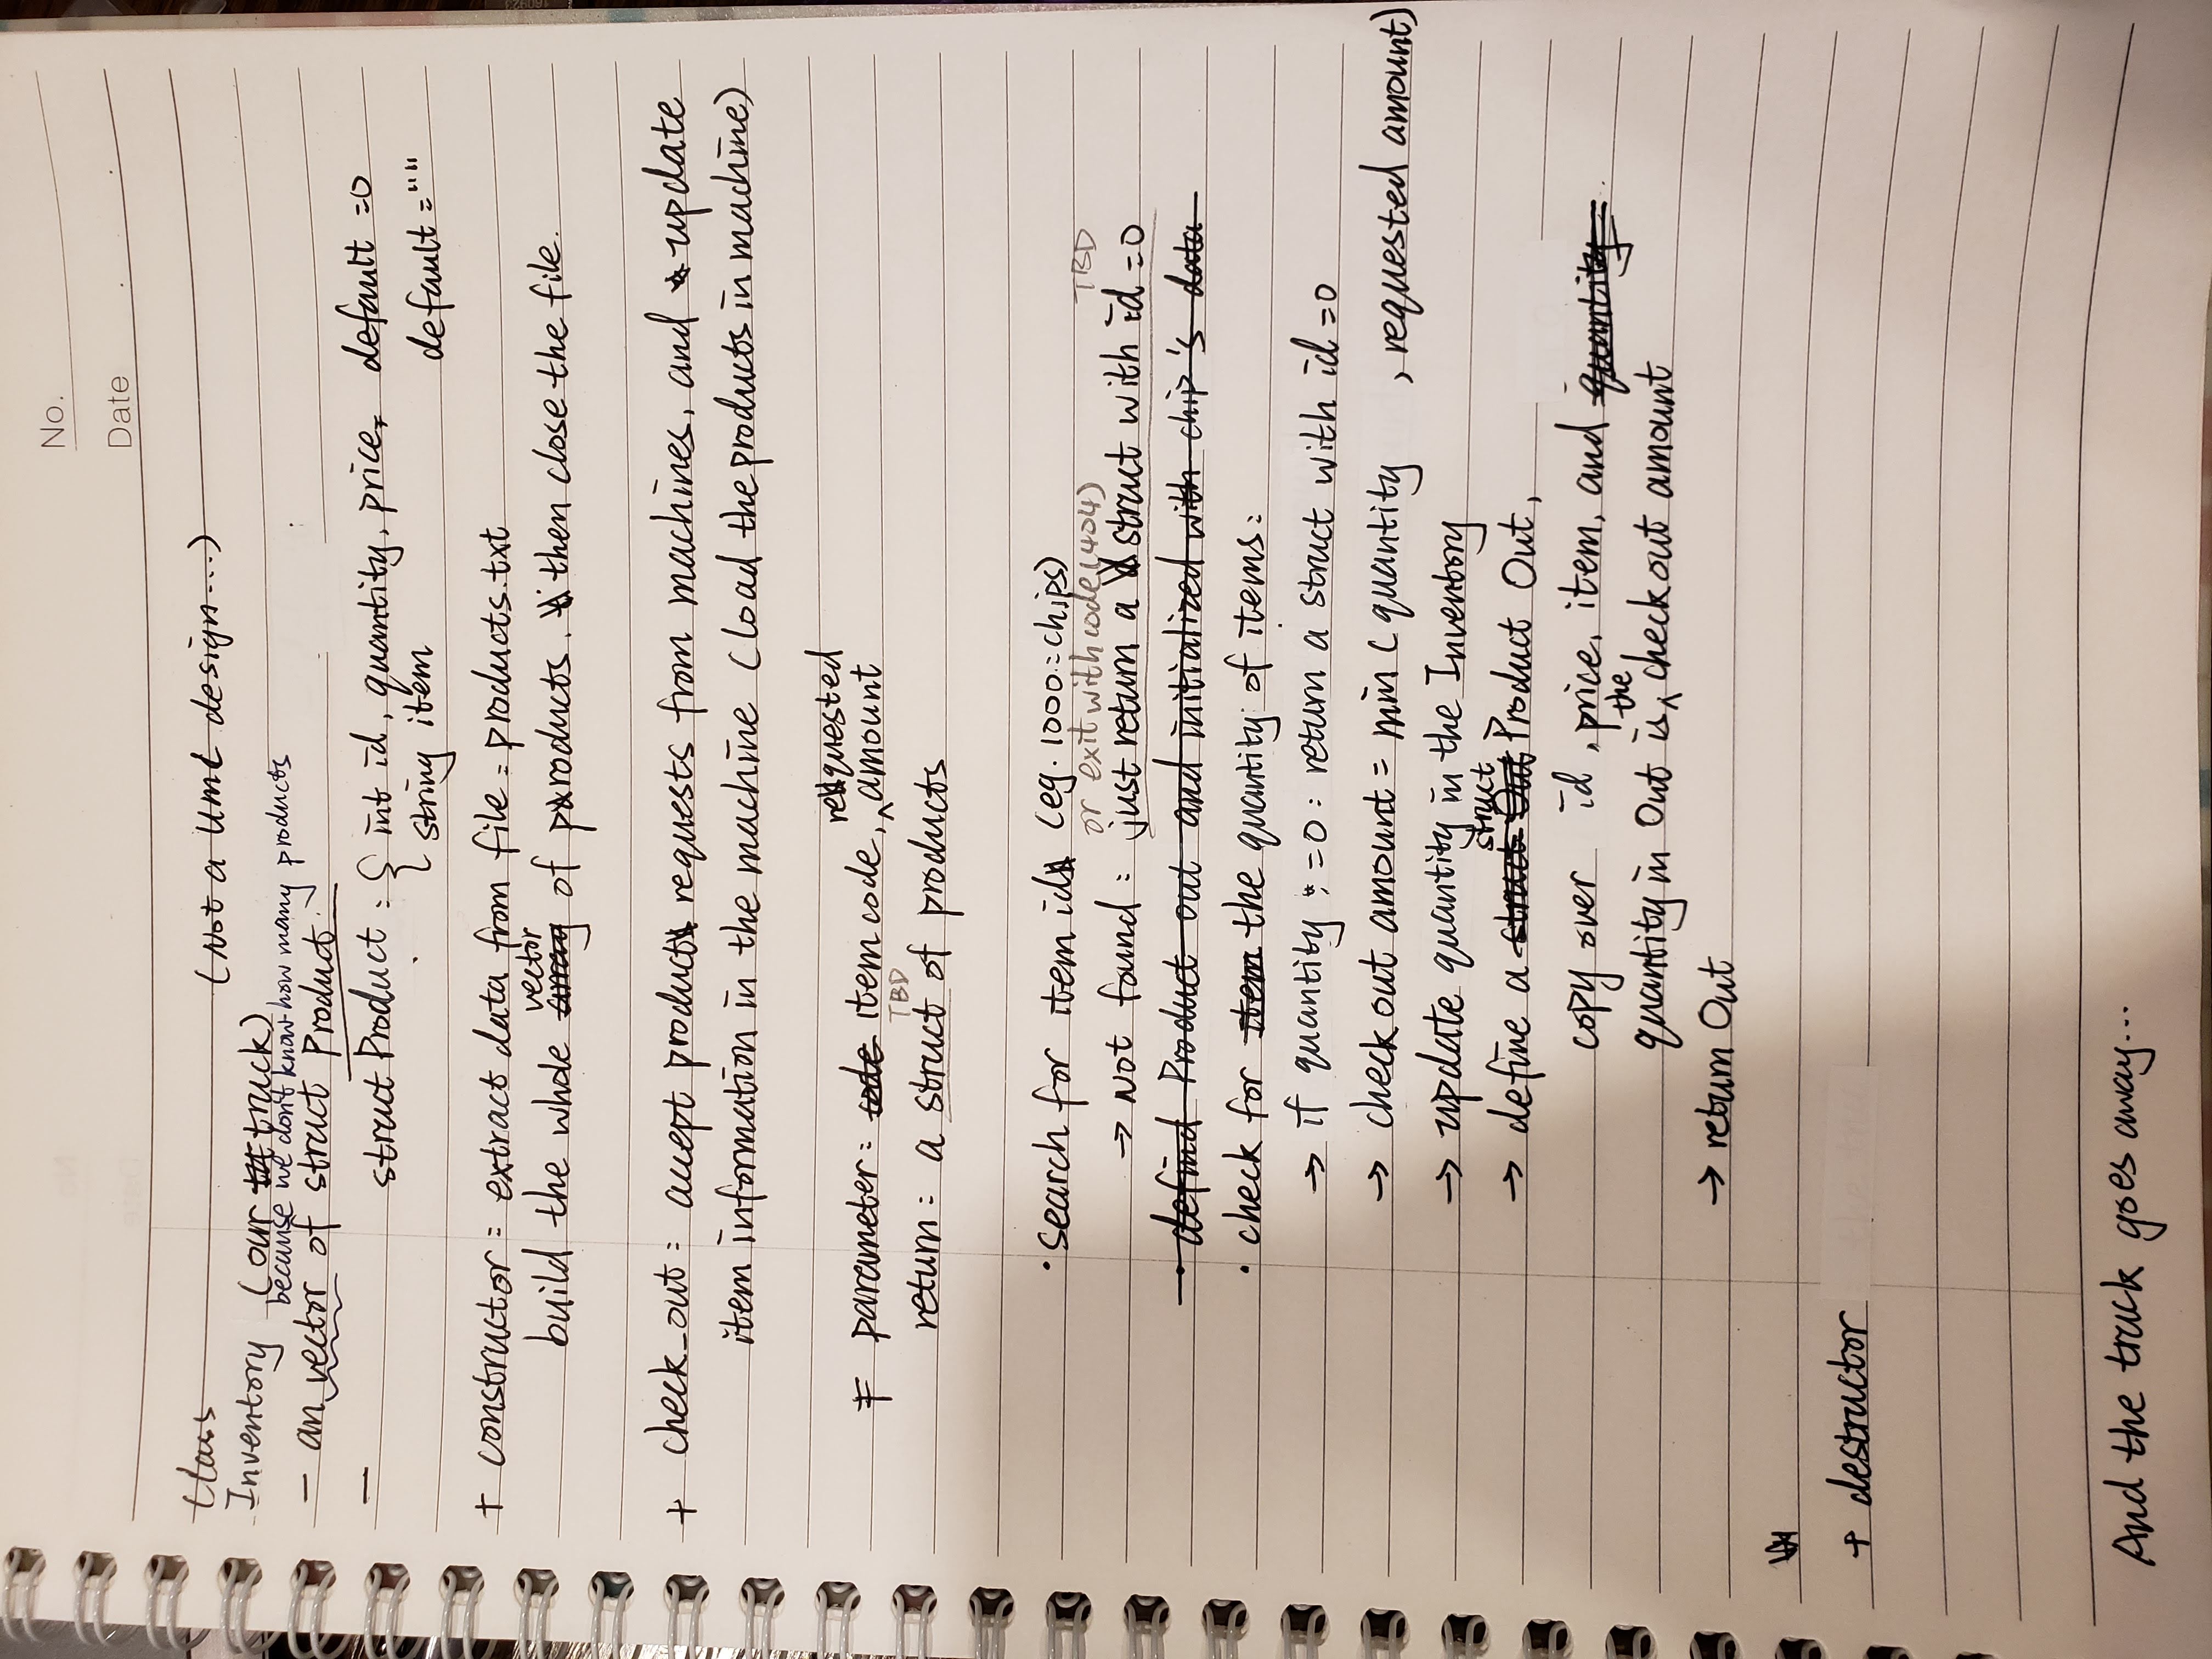 No.
Date
Class (Not a UML design...)
Inventory (our truck)
because we don't know how many products
- an vector of struct Product.
- struct Product: { int id, quantity, price, default =0
string item default = ""
+ constructor: extract data from file: products.txt
vector
build the whole array of products. then close the file.
+ check_out: accept product requests from machines, and update
item information in the machine (load the products in machine)
requested
parameter: code item code, ^ amount
TBD
return: a struct of products
• search for item id (eg. 1000:chips)
or exit with code(404) TBD
→ Not found: just return a struct with id =0
• defind Product out and initialized with chip's data
• check for item the quantity of items:
→ if quantity :=0: return a struct with id =0
→ check out amount = min (quantity , requested amount)
→ update quantity in the Inventory
struct
→ define a struct Out Product Out,
copy over id, price, item, and quantity
the
quantity in Out is ^ check out amount
→ return Out
+ destructor
And the truck goes away...